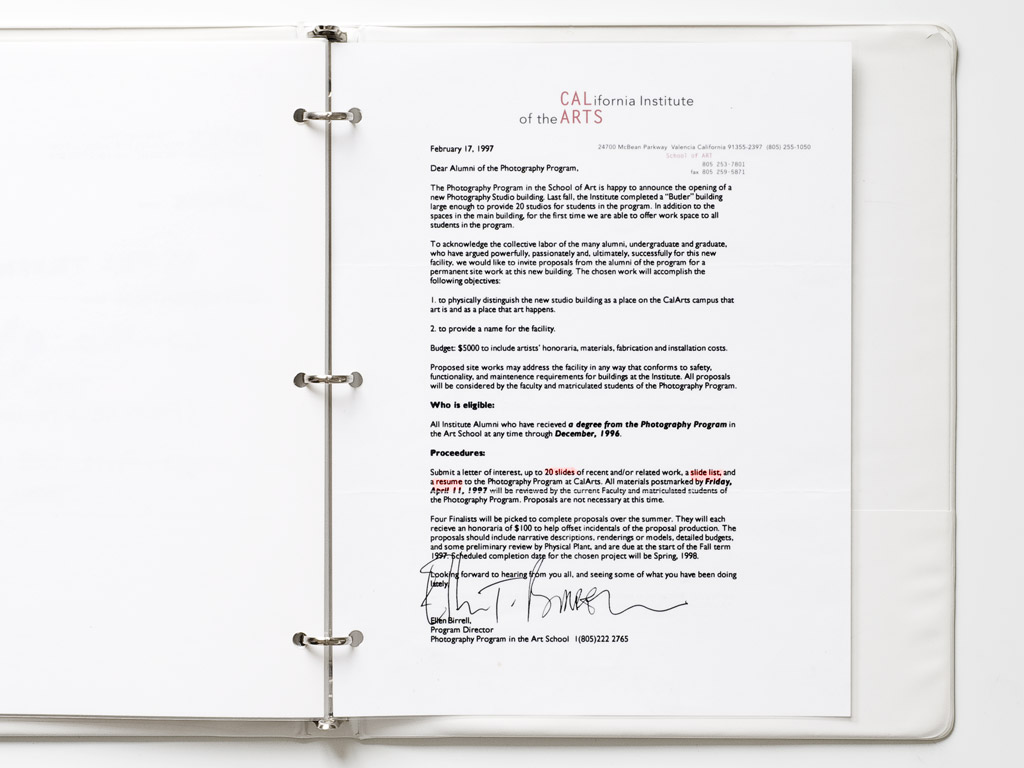 CALifornia Institute
of the ARTS
24700 McBean Parkway Valencia California 91355-2397 (805) 255-1050
School of ART
805 253-7801
fax 805 259-5871
February 17, 1997
Dear Alumni of the Photography Program,
The Photography Program in the School of Art is happy to announce the opening of a
new Photography Studio building. Last fall, the Institute completed a "Butler" building
large enough to provide 20 studios for students in the program. In addition to the
spaces in the main building, for the first time we are able to offer work space to all
students in the program.
To acknowledge the collective labor of the many alumni, undergraduate and graduate,
who have argued powerfully, passionately and, ultimately, successfully for this new
facility, we would like to invite proposals from the alumni of the program for a
permanent site work at this new building. The chosen work will accomplish the
following objectives:
1. to physically distinguish the new studio building as a place on the CalArts campus that
art is and as a place that art happens.
2. to provide a name for the facility.
Budget: $5000 to include artists' honoraria, materials, fabrication and installation costs.
Proposed site works may address the facility in any way that conforms to safety,
functionality, and maintenence requirements for buildings at the Institute. All proposals
will be considered by the faculty and matriculated students of the Photography Program.
Who is eligible:
All Institute Alumni who have recieved a degree from the Photography Program in
the Art School at any time through December, 1996.
Proceedures:
Submit a letter of interest, up to 20 slides of recent and/or related work, a slide list, and
a resume to the Photography Program at CalArts. All materials postmarked by Friday,
April 11, 1997 will be reviewed by the current Faculty and matriculated students of
the Photography Program. Proposals are not necessary at this time.
Four Finalists will be picked to complete proposals over the summer. They will each
recieve an honoraria of $100 to help offset incidentals of the proposal production. The
proposals should include narrative descriptions, renderings or models, detailed budgets,
and some preliminary review by Physical Plant, and are due at the start of the Fall term
1997. Scheduled completion date for the chosen project will be Spring, 1998.
Looking forward to hearing from you all, and seeing some of what you have been doing
lately.
Ellen Birrell,
Program Director
Photography Program in the Art School 1(805)222 2765